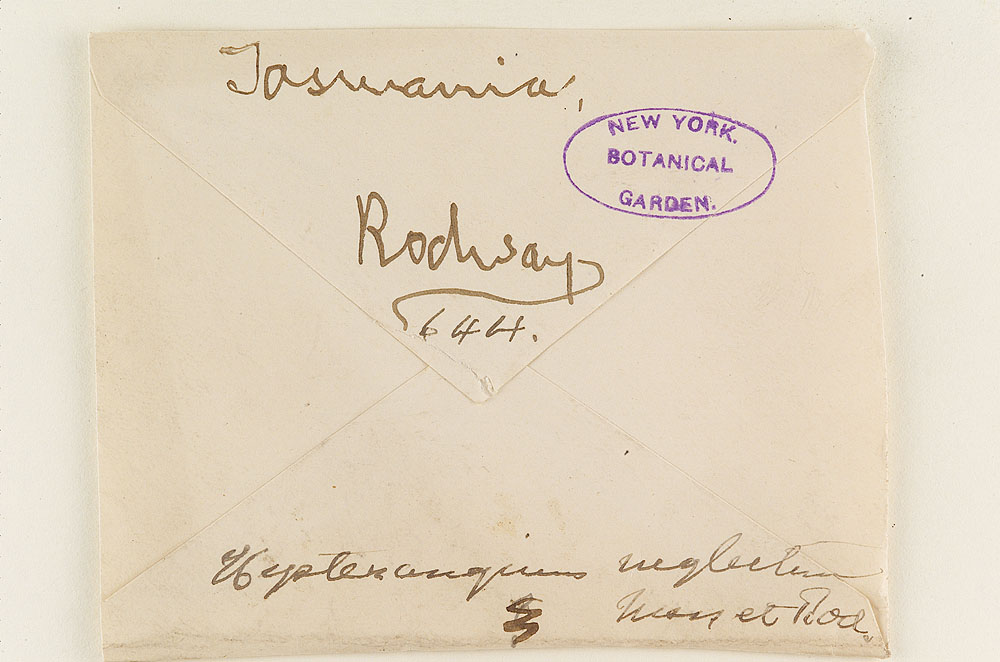 Tasmania,
NEW YORK.
BOTANICAL
GARDEN.
Rodway
644.
Hysterangium neglectum
Mass et Rod.